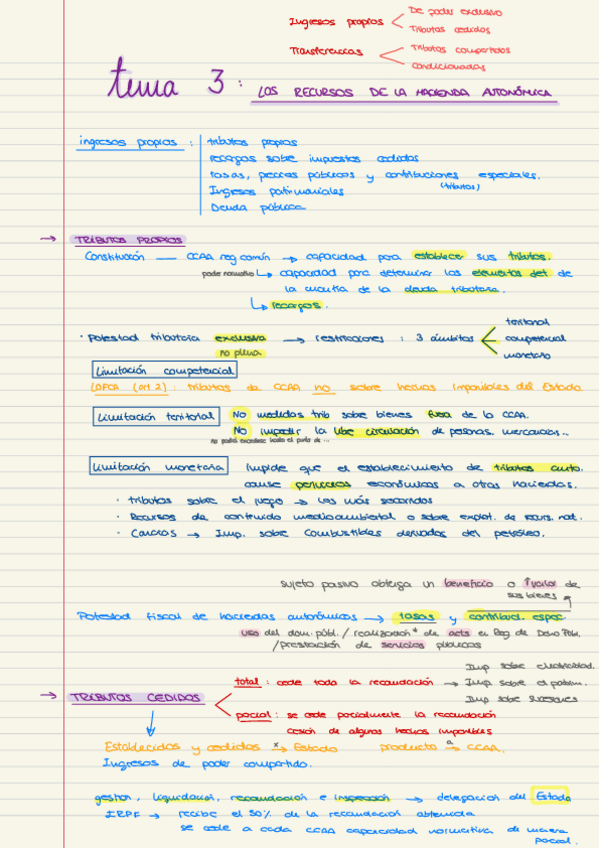 Ingresos propios
De poder exclusivo
Tributos cedidos
Transferencias
Tributos compartidos
Condicionadas
tema 3: LOS RECURSOS DE LA HACIENDA AUTONÓMICA
ingresos propios :
tributos propios
recargos sobre impuestos cedidos
tasas, precios públicos y contribuciones especiales.
(tributos)
Ingresos patrimoniales
Deuda pública
→ TRIBUTOS PROPIOS
Constitución — CCAA reg común → capacidad para establecer sus tributos.
poder normativo ↳ capacidad para determinar los elementos det de
la cuantía de la deuda tributaria.
↳ recargos.
· Potestad tributaria exclusiva → restricciones : 3 ámbitos
no plena
territorial
competencial
monetario
Limitación competencial
LOFCA (art 2) : tributos de CCAA no sobre hechos imponibles del Estado
Limitación territorial
No medidas trib sobre bienes fuera de la CCAA.
No impedir la libre circulación de personas, mercancías...
no podrá excederse hasta el punto de ...
Limitación monetaria
Impide que el establecimiento de tributos auto.
cause perjuicios económicos a otras haciendas.
· tributos sobre el juego → los más socorridos
· Recursos de contenido medioambiental o sobre explot. de recurs. nat.
· Canarias → Imp. sobre Combustibles derivados del petróleo.
sujeto pasivo obtenga un beneficio o ↑valor de
sus bienes
Potestad fiscal de haciendas autonómicas → tasas y contribuci. espec.
uso del dom. públ. / realización de acts en Reg de Dcho Púb.
/prestación de servicios públicos
→ TRIBUTOS CEDIDOS
total : cede toda la recaudación →
Imp sobre electricidad.
Imp sobre el patrim.
Imp sobre Sucesiones
parcial : se cede parcialmente la recaudación
cesión de algunos hechos imponibles
Establecidos y cedidos x→ Estado producto a→ CCAA.
Ingresos de poder compartido.
gestión, liquidación, recaudación e inspección → delegación del Estado
IRPF → recibe el 50% de la recaudación obtenida
se cede a cada CCAA capacidad normativa de manera
parcial.